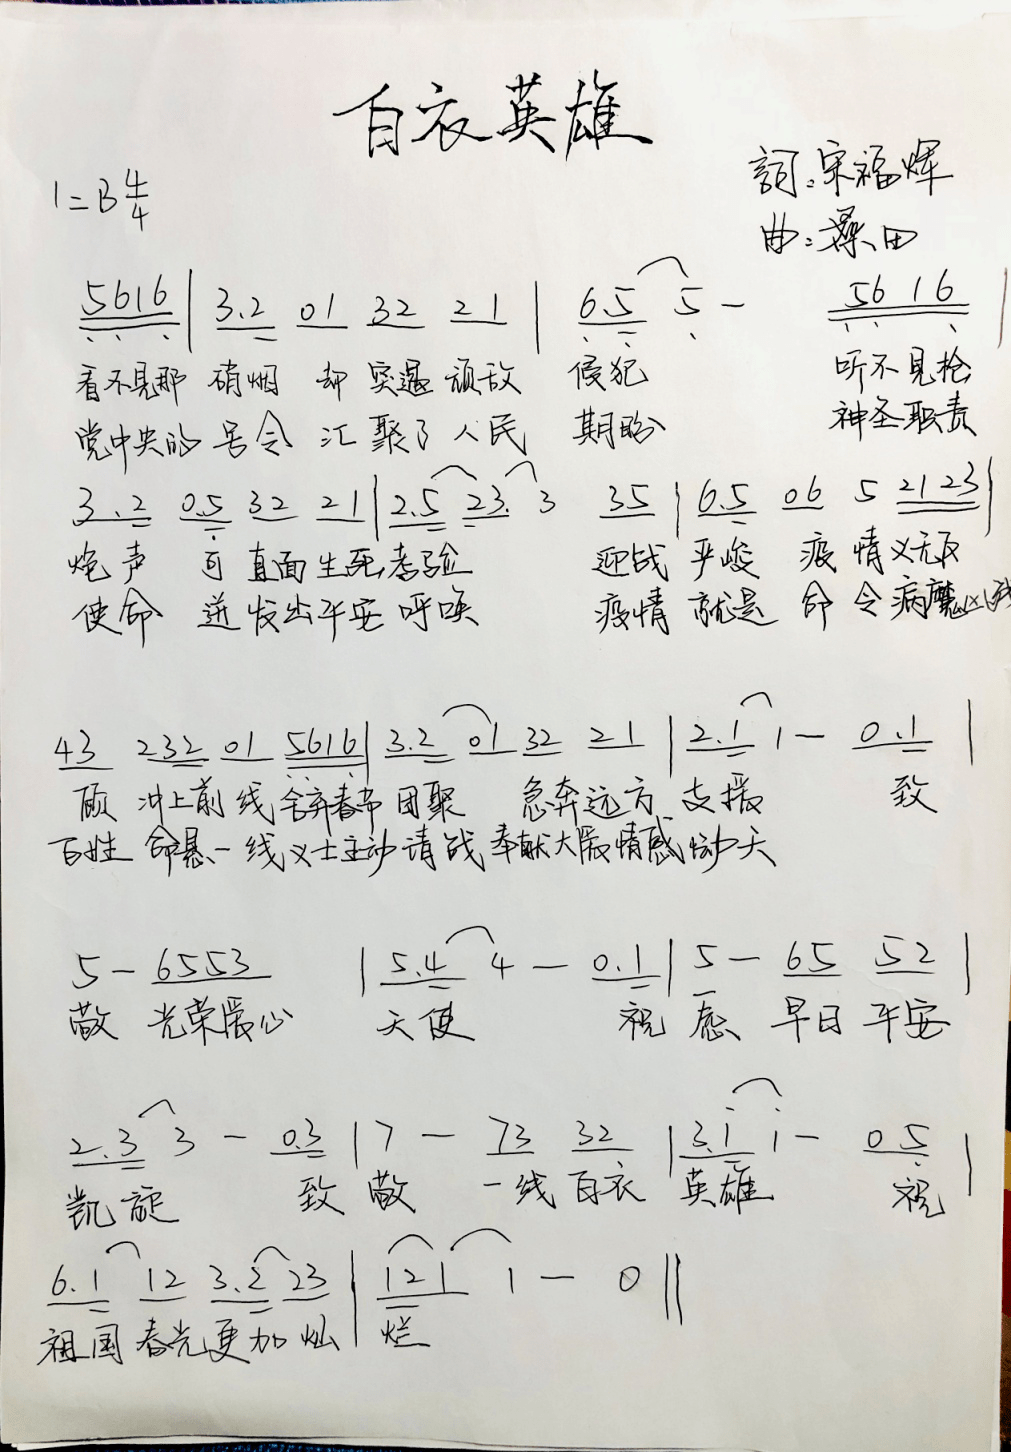 白衣英雄
詞:宋福辉
1=B 4/4
曲:桑田
5616 | 3.2 01 32 21 | 6.5 5 - 5616 |
看不见那 硝烟 却 突遇 顽敌 侵犯 听不见枪
党中央的 号令 汇 聚了 人民 期盼 神圣职责
3.2 0.5 32 21 | 2.5 23. 3 35 | 6.5 06 5 2123 |
炮声 可 直面 生死 考验 迎战 严峻 疫 情 义无反
使命 迸 发出 平安 呼唤 疫情 就是 命 令 病魔
43 232 01 5616 | 3.2 01 32 21 | 2.1 1 - 0.1 |
顾 冲上前 线 舍弃春节 团聚 急奔 远方 支援 致
百姓 命悬一 线 义士主动 请战 奉献大爱情感动天
5 - 6553 | 5.4 4 - 0.1 | 5 - 65 52 |
敬 光荣爱心 天使 祝 愿 早日 平安
2.3 3 - 0.3 | 7 - 73 32 | 3.1 1 - 0.5 |
凯旋 致 敬 一线 白衣 英雄 祝
6.1 12 3.2 23 | 121 1 - 0 ||
祖国 春光 更加 灿 烂